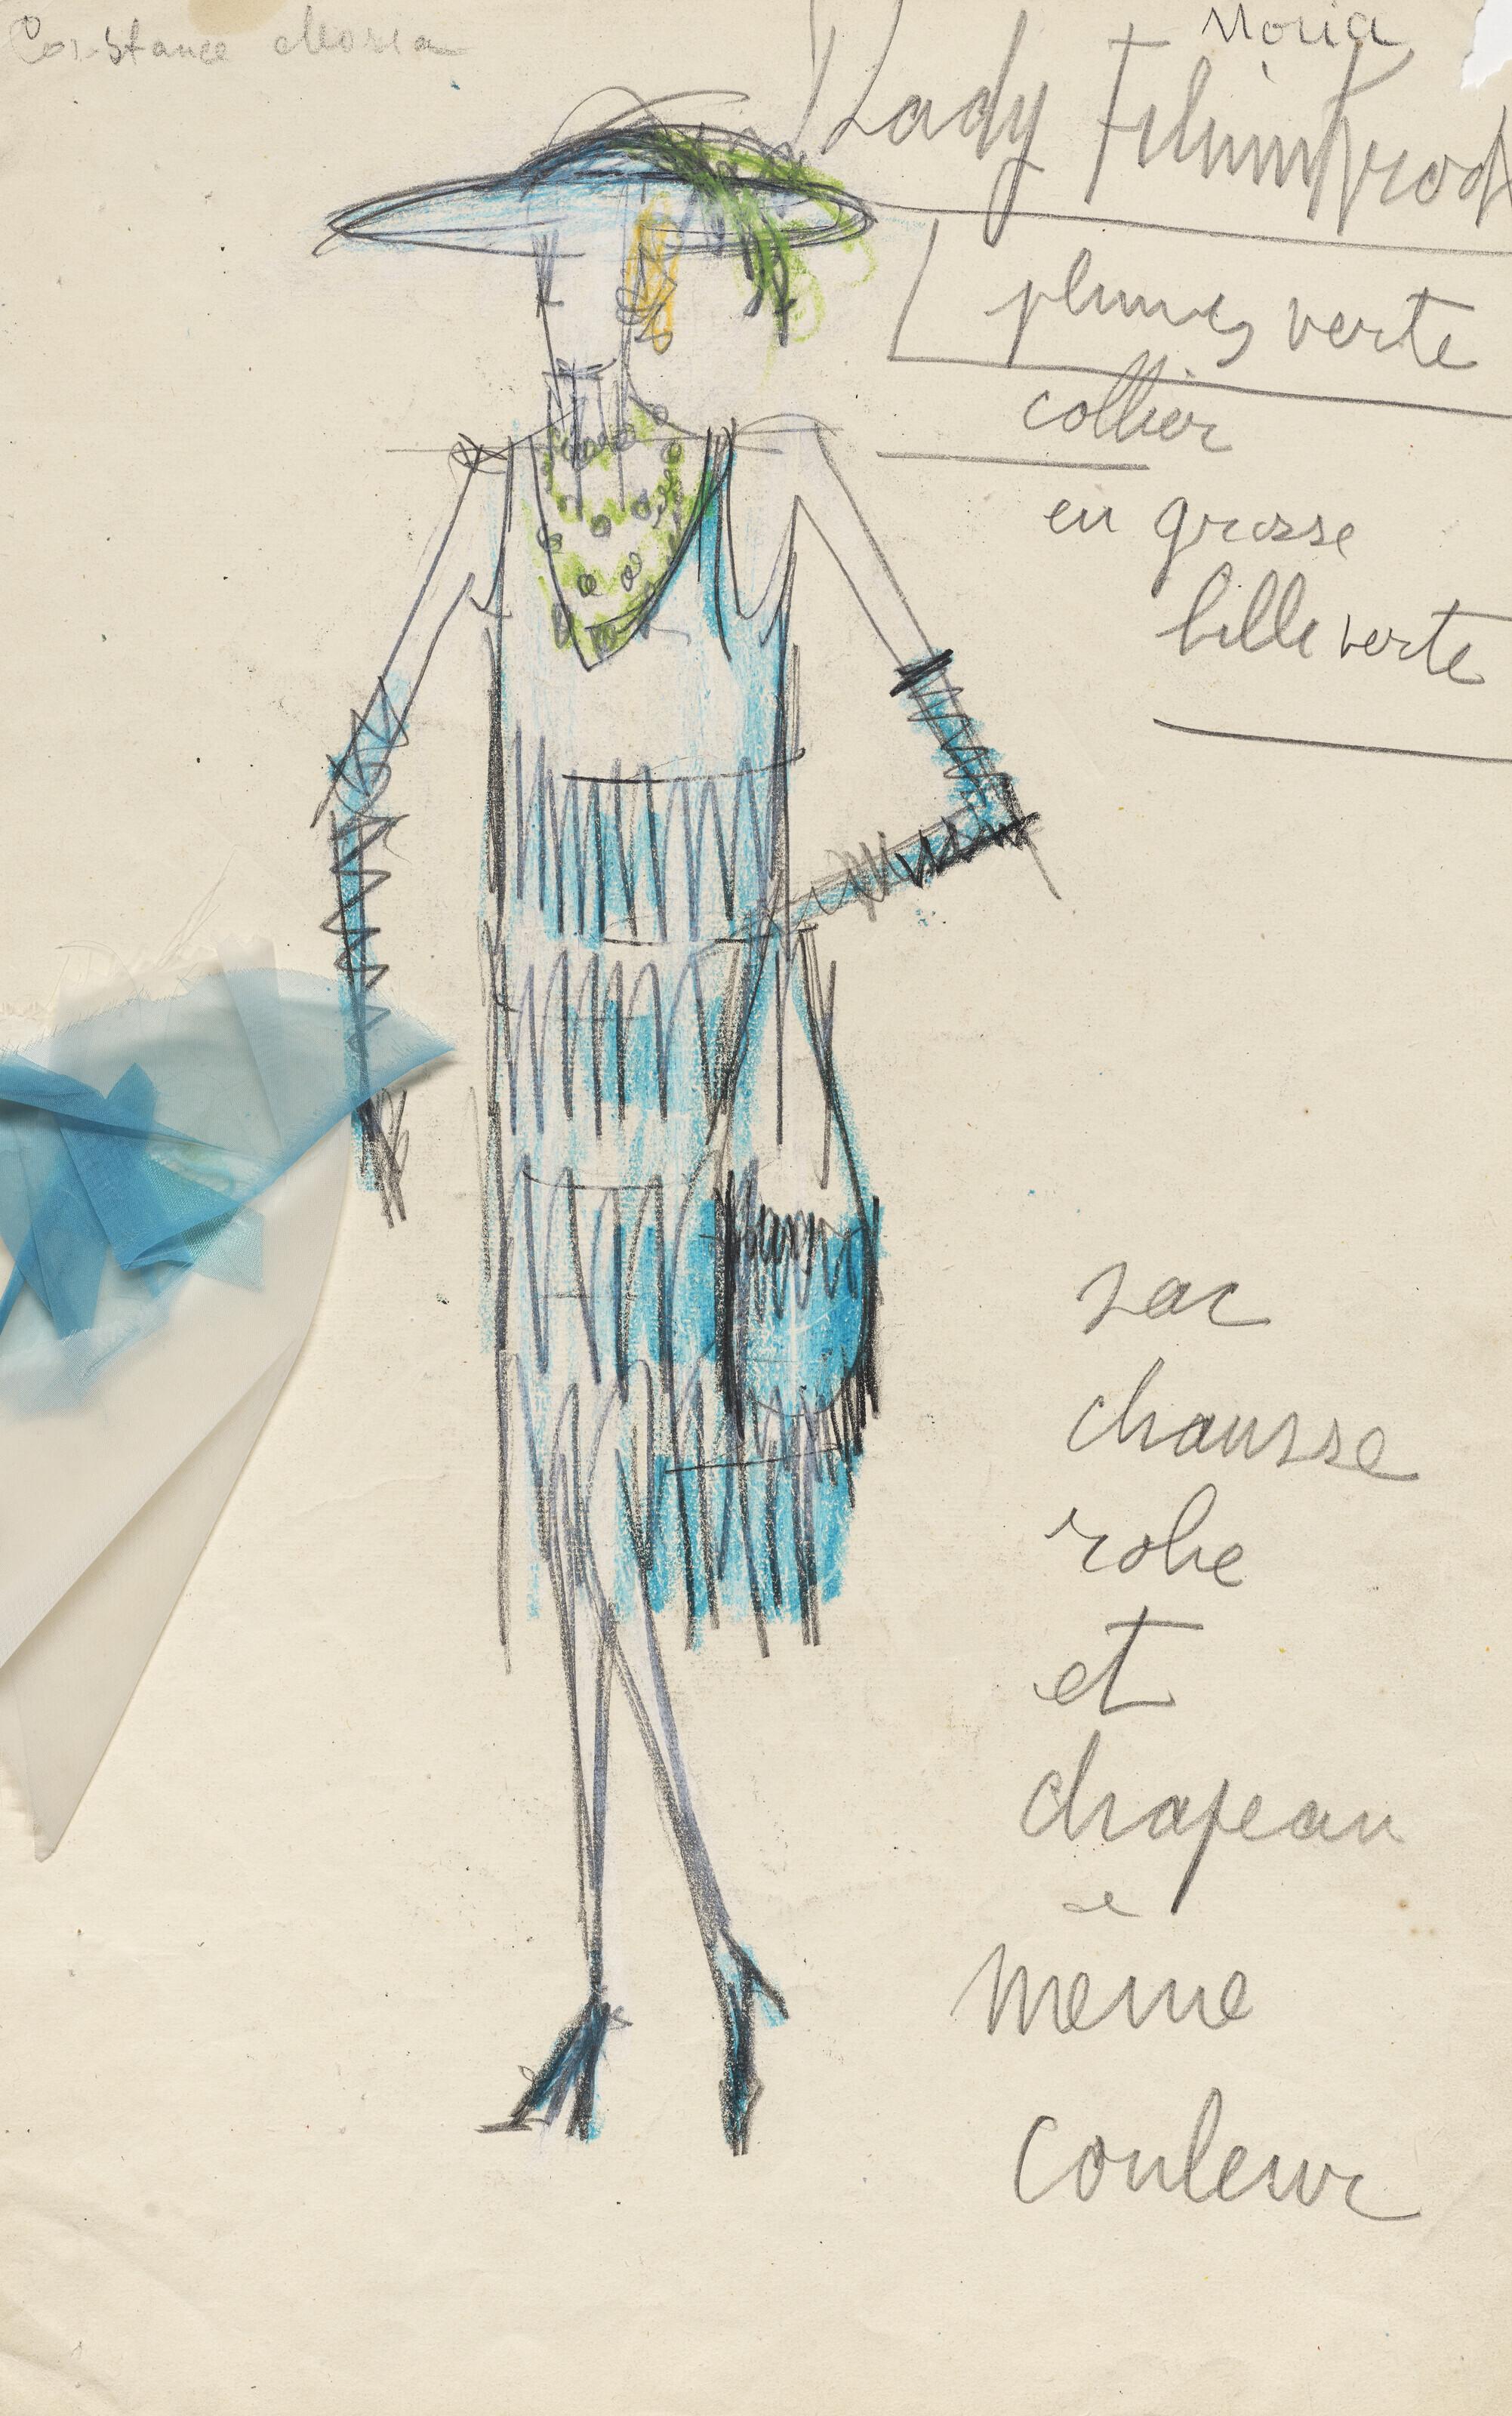 Constance Moria
Moria
Lady
plumes verte
collier
en grosse
bille verte
sac
chausse
robe
et
chapeau
même
couleur